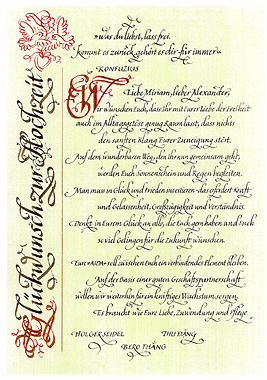 Glückwunsch zur Hochzeit
»was du liebst, lass frei.
kommt es zurück, gehört es dir – für immer«
KONFUZIUS
Liebe Miriam, lieber Alexander,
Wir wünschen Euch, dass Ihr mit Eurer Liebe der Freiheit
auch im Alltagsgetöse genug Raum lasst, dass nichts
den sanften Klang Eurer Zuneigung stört.
Auf dem wunderbaren Weg, den ihr nun gemeinsam geht,
werden Euch Sonnenschein und Regen begleiten.
Man muss in Glück und Frieden investieren – das erfordert Kraft
und Gelassenheit, Großzügigkeit und Verständnis.
Denkt in Eurem Glück an alle, die Euch gern haben und Euch
so viel Gelingen für die Zukunft wünschen.
Eure soll zwischen Euch ein verbindendes Element bleiben.
Auf der Basis einer guten Geschäftspartnerschaft
wollen wir weiterhin für ein kräftiges Wachstum sorgen.
Es braucht wie Eure Liebe, Zuwendung und Pflege.
HOLGER SEIDEL THU
BERG THÀNG